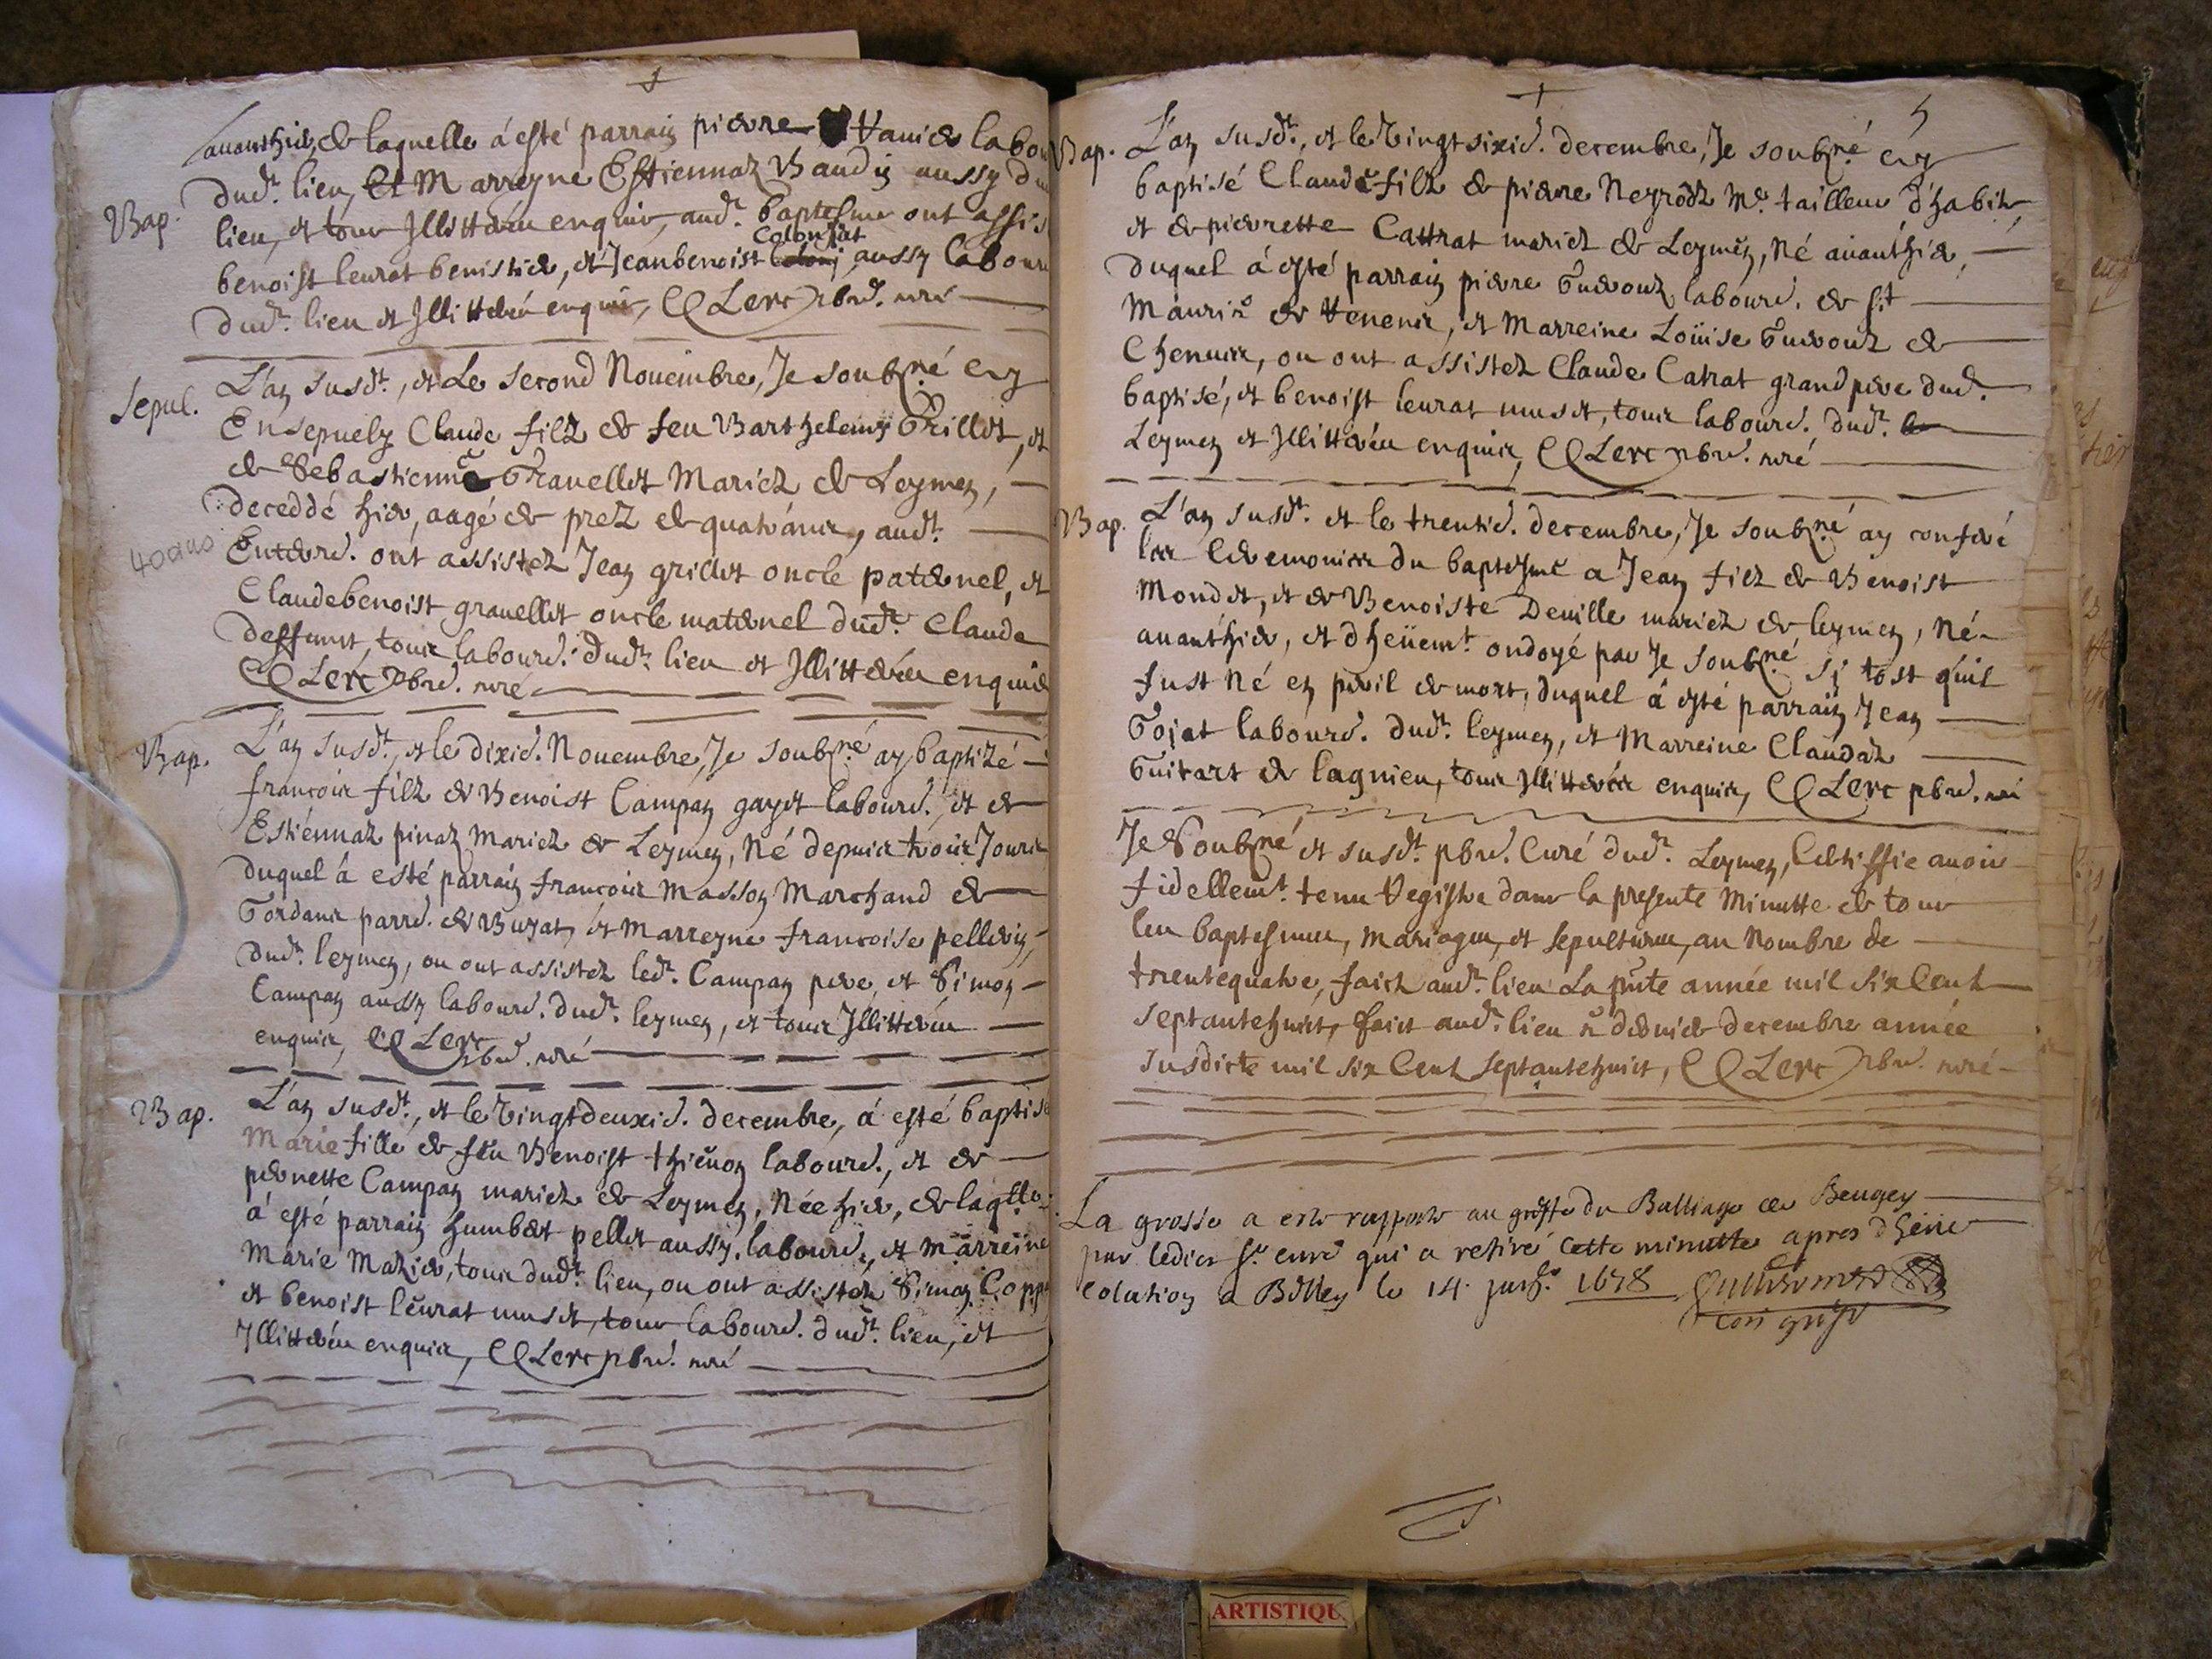 avanthier, de laquelle á esté parrain pierre Vanier labou
dud.t lieu, et Marreyne Estiennaz Baudin aussy du
Bap. lieu, et tous Illitterés enquis, aud.t baptesme ont assis
Colonjat
benoist leurat benistier, et Jeanbenoist aussy labour
dud.t lieu et Illitterés enquis, C Lerc pbre. curé
Sepul. L'an susd.t, et Le second Nouembre, Je soubz.né ay
Ensepuely Claude filz de feu Barthelemy Grillet, et
de Sebastienne Grauellet Mariez de Leymen,
deceddé hier, aagé de prez de quatr'ans, aud.t
40 ans Enterre. ont assistez Jean grillet oncle paternel, et
Claudebenoist grauellet oncle maternel dud.t Claude
deffunct, tous labour. dud.t lieu et Illitterés enquis
C Lerc pbre. curé
Bap. L'an susd.t, et le dixie. Nouembre, Je soubz.né ay baptizé
francois filz de Benoist Campan gayet labour. et de
Estiennaz pinaz Mariez de Leymen, Né depuis trois Jours
duquel á esté parrain francois Masson Marchand de
Tordans parre. de Buyat, et Marreyne francoise pellerin,
dud.t leymen, ou ont assistez led.t Campan pere, et Simon
Campan aussy labour. dud.t leymen, et tous Illitterés
enquis, C Lerc pbre. curé
Bap. L'an susd.t, et le Vingtdeuxie. decembre, á esté baptisé
Marie fille de feu Benoist thieuon labour., et de
pernette Campan mariez de Leymen, Née hier, de laq.lle
á esté parrain humbert pellet aussy labour., et marreine
Marie Mazier, tous dud.t lieu, ou ont assistez Simon Copp
et benoist leurat muset, tous labour. dud.t lieu, et
Illitterés enquis, C Lerc pbre. curé
5
Bap. L'an susd.t, et le Vingt sixie. decembre, Je soubz.né ay
baptisé Claude filz de pierre Neyrodz M.e tailleur d'habits,
et de pierrette Cattrat mariez de Leymen, Né auanthier,
duquel á esté parrain pierre Gudouz labour. de S.t
Mauris de Remens, et Marreine Loüise Gudouz de
Chenues, ou ont assistez Claude Catrat grand pere dud.
baptisé, et benoist leurat muset, tous labour. dud.t
Leymen et Illitterés enquis, C Lerc pbre. curé
Bap. L'an susd.t et le trentie. decembre, Je soubz.né ay conferé
les Ceremonies du baptesme a Jean filz de Benoist
Mondet, et de Benoiste Deuille mariez de leymen, Né
auanthier, et dheüem.t ondoyé par Je soubz.né si tost quil
fust Né en peril de mort, duquel á esté parrain Jean
Gojat labour. dud.t leymen, et Marreine Claudaz
Guitart de lagnieu, tous Illitterés enquis, C Lerc pbre. curé
Je Soubz.né et susd.t pbre. Curé dud.t Leymen, Certiffie auoir
fidellem.t tenu Registre dans la presente Minutte de tous
les baptesmes, mariages, et sepultures, au Nombre de
trentequatre, faicts aud.t lieu La pnte année mil six Cent
septantehuict, faict aud.t lieu ce dernier decembre année
susdicte mil six Cent septantehuict, C Lerc pbre. curé
La grosse a este rapporte au greffe du Balliage de Beugey
par ledict S.r curé qui a retiré cette minutte apres dheue
colation a Belley le 14 1678